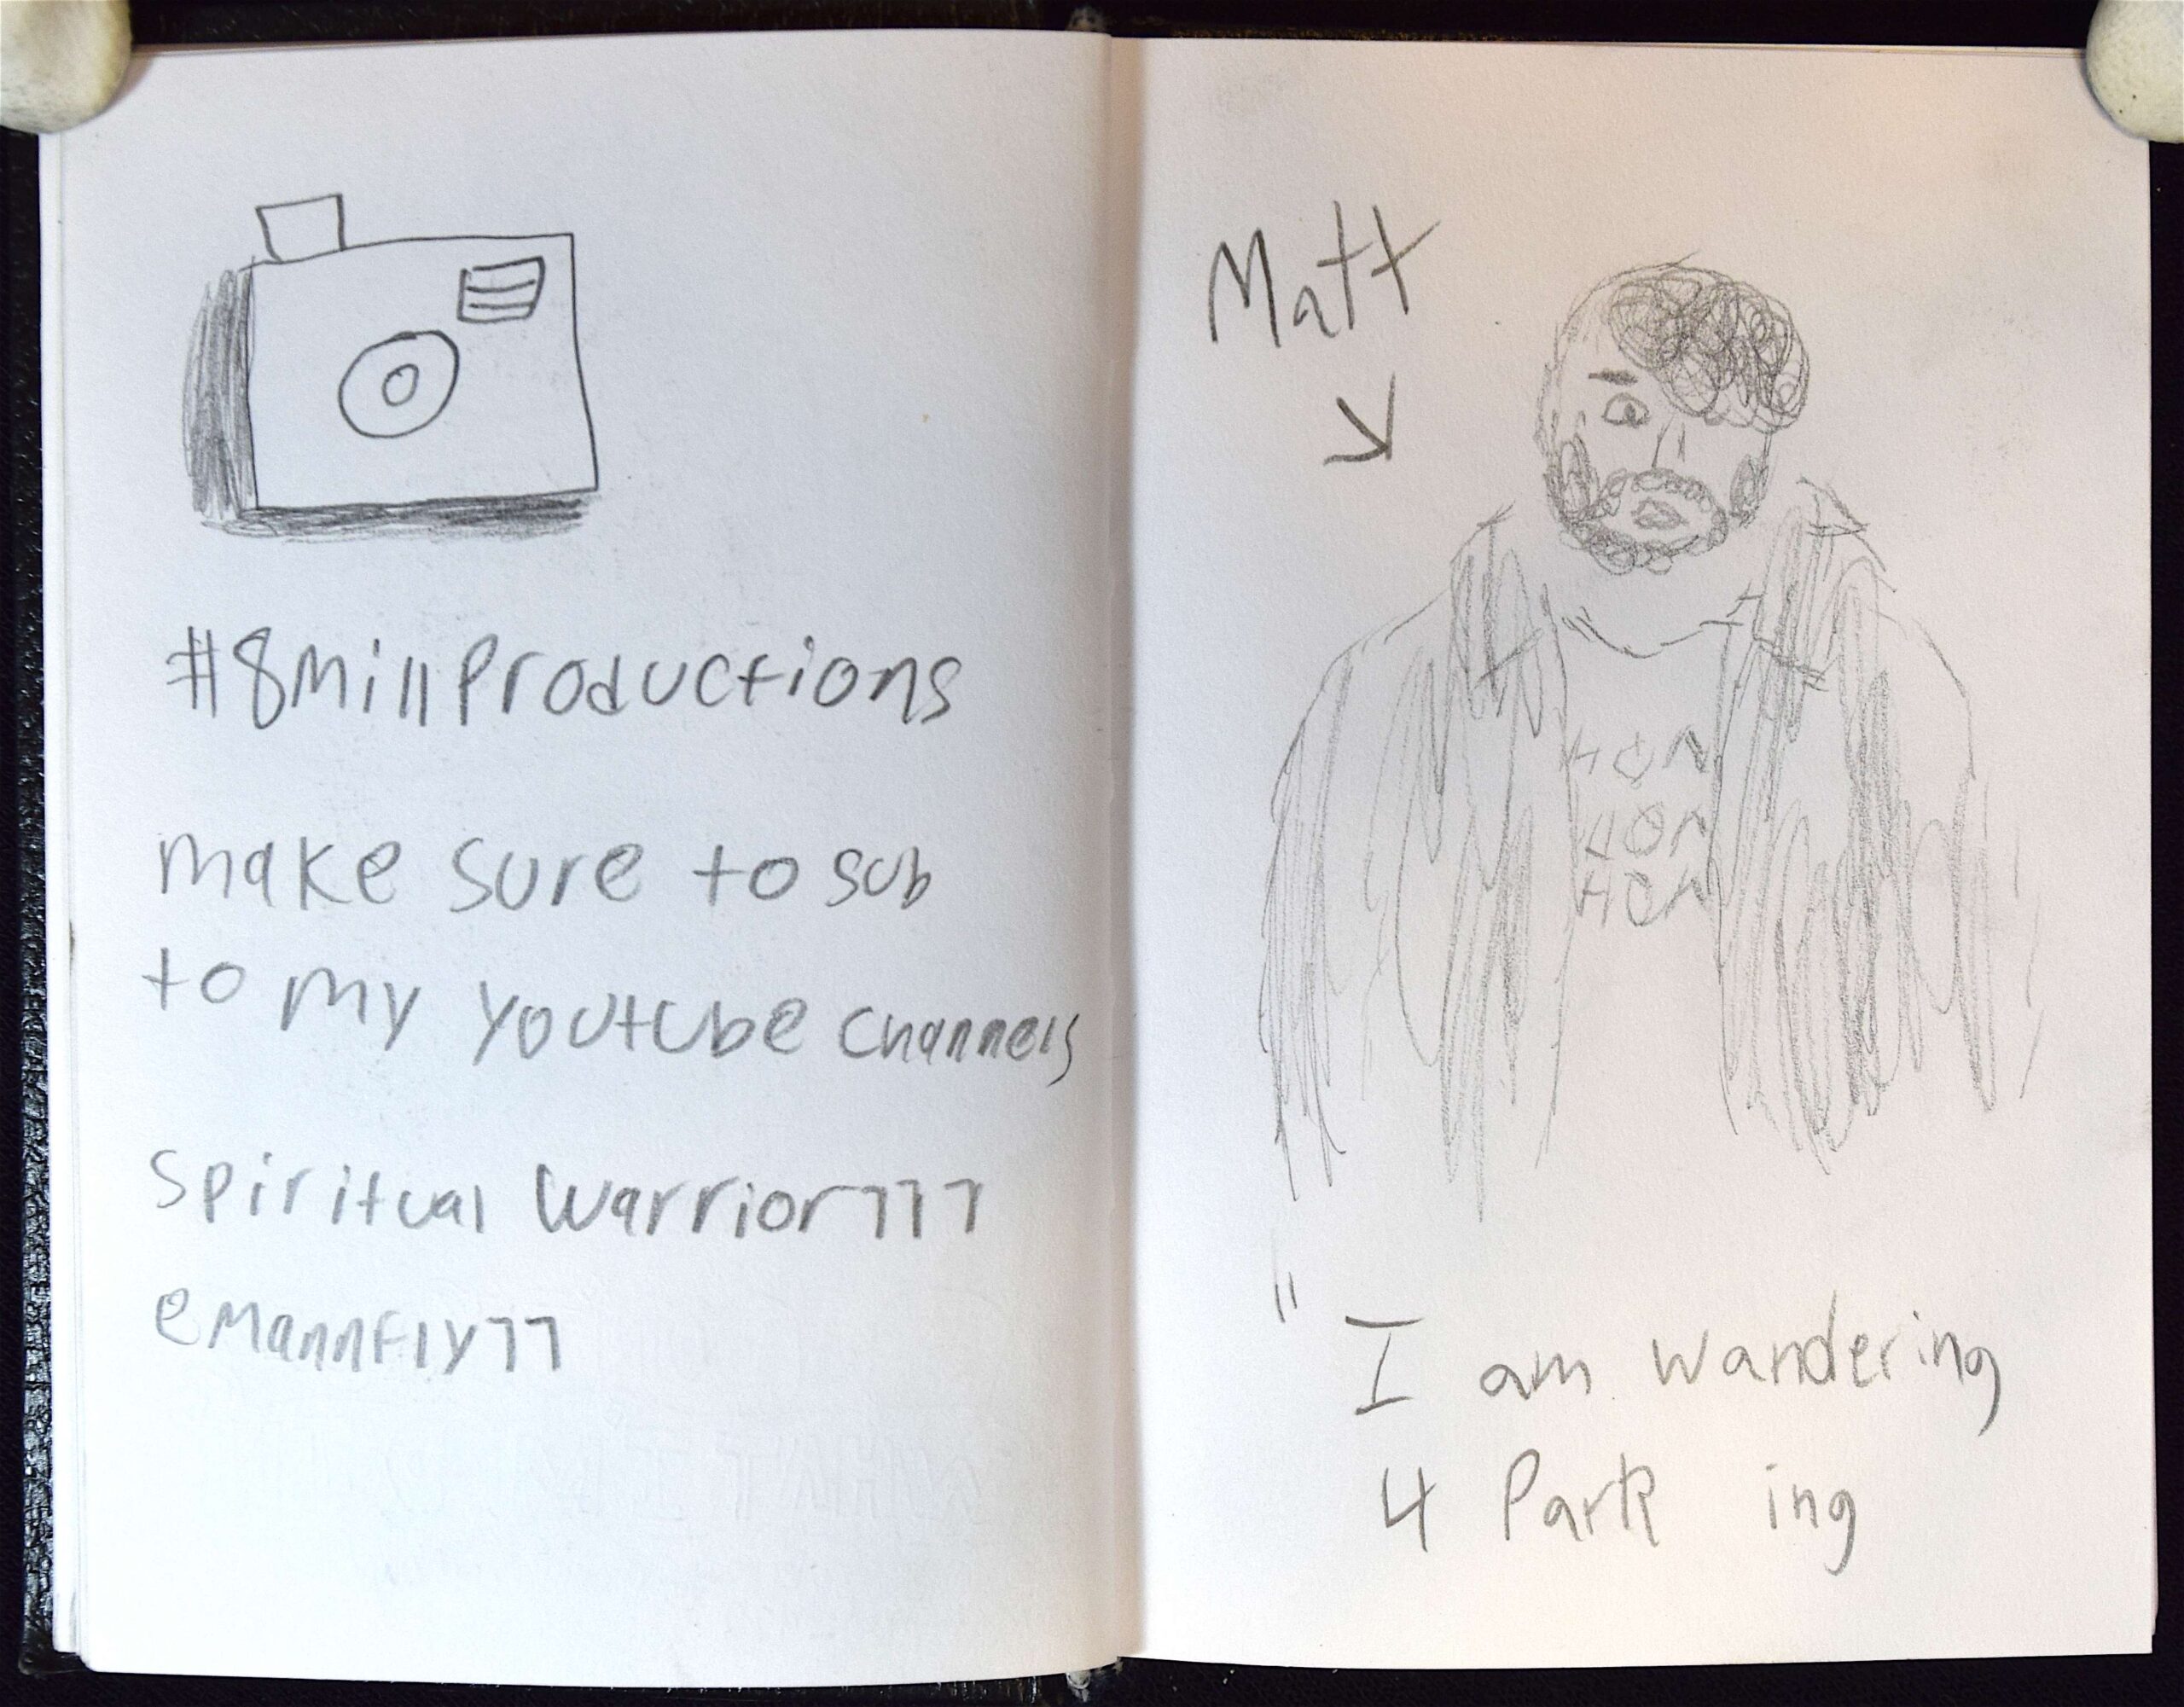 #8MillProductions
make sure to sub
to my youtube channels
Spiritual Warrior777
eMannFly77
Matt
HON
HON
HON
" I am wandering
4 Park ing